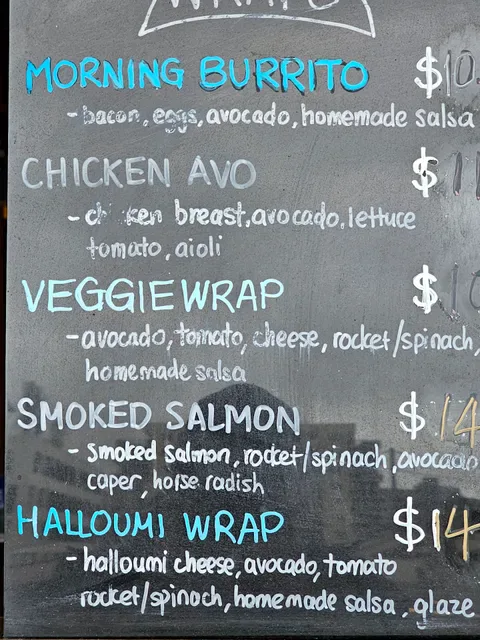 WRAPS
MORNING BURRITO $10.
- bacon, eggs, avocado, homemade salsa
CHICKEN AVO $11
- chicken breast, avocado, lettuce
tomato, aioli
VEGGIE WRAP $10
- avocado, tomato, cheese, rocket/spinach,
homemade salsa
SMOKED SALMON $14
- smoked salmon, rocket/spinach, avocado
caper, horse radish
HALLOUMI WRAP $14
- halloumi cheese, avocado, tomato
rocket/spinach, homemade salsa, glaze